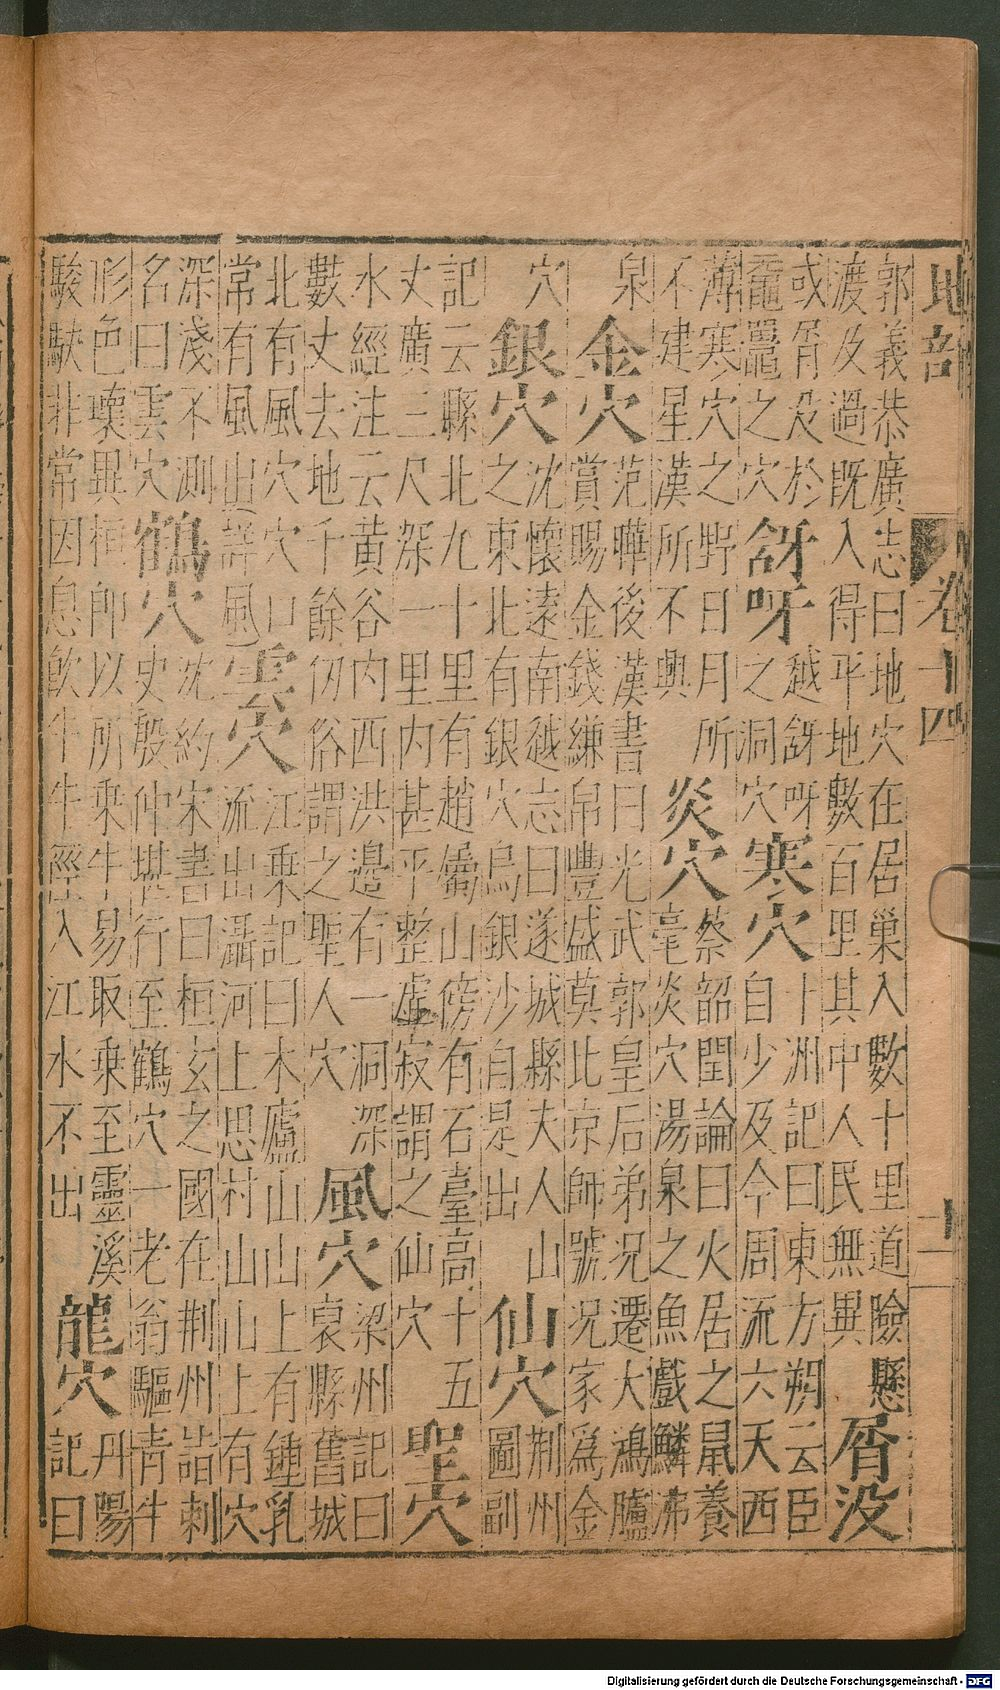 地部 卷十四 十一
郭義恭廣志曰地穴在居巢入數十里道險懸
渡及過既入得平地數百里其中人民無異
胥没
或胥没於
黿鼉之穴
谺呀
越谺呀
之洞穴
寒穴
十洲記曰東方朔云臣
自少及今周流六天西
薄寒穴之野日月所
不建星漢所不與
炎穴
蔡韶閏論曰火居之鼠養
毫炎穴湯泉之魚戲鱗沸
泉
金穴
范曄後漢書曰光武郭皇后弟況遷大鴻臚
賞賜金錢縑帛豐盛莫比京師號況家爲金
穴
銀穴
沈懷遠南越志曰遂城縣夫人山
之東北有銀穴烏銀沙自是出
仙穴
荆州
圖副
記云縣北九十里有趙屬山傍有石臺高十五
丈廣三尺深一里内甚平整虛寂謂之仙穴
聖穴
水經注云黄谷内西洪邉有一洞深
數丈去地千餘仞俗謂之聖人穴
風穴
梁州記曰
裒縣舊城
北有風穴穴口
常有風出詳風
雲穴
江乗記曰木廬山山上有鍾乳
流出灄河上思村山山上有穴
深淺不測
名曰雲穴
鶴穴
沈約宋書曰桓玄之國在荆州詣刺
史殷仲堪行至鶴穴一老翁驅青牛
形色瓌異桓卽以所乗牛易取乗至靈溪
駿駃非常因息飲牛牛徑入江水不出
龍穴
丹陽
記曰
Digitalisierung gefördert durch die Deutsche Forschungsgemeinschaft - DFG